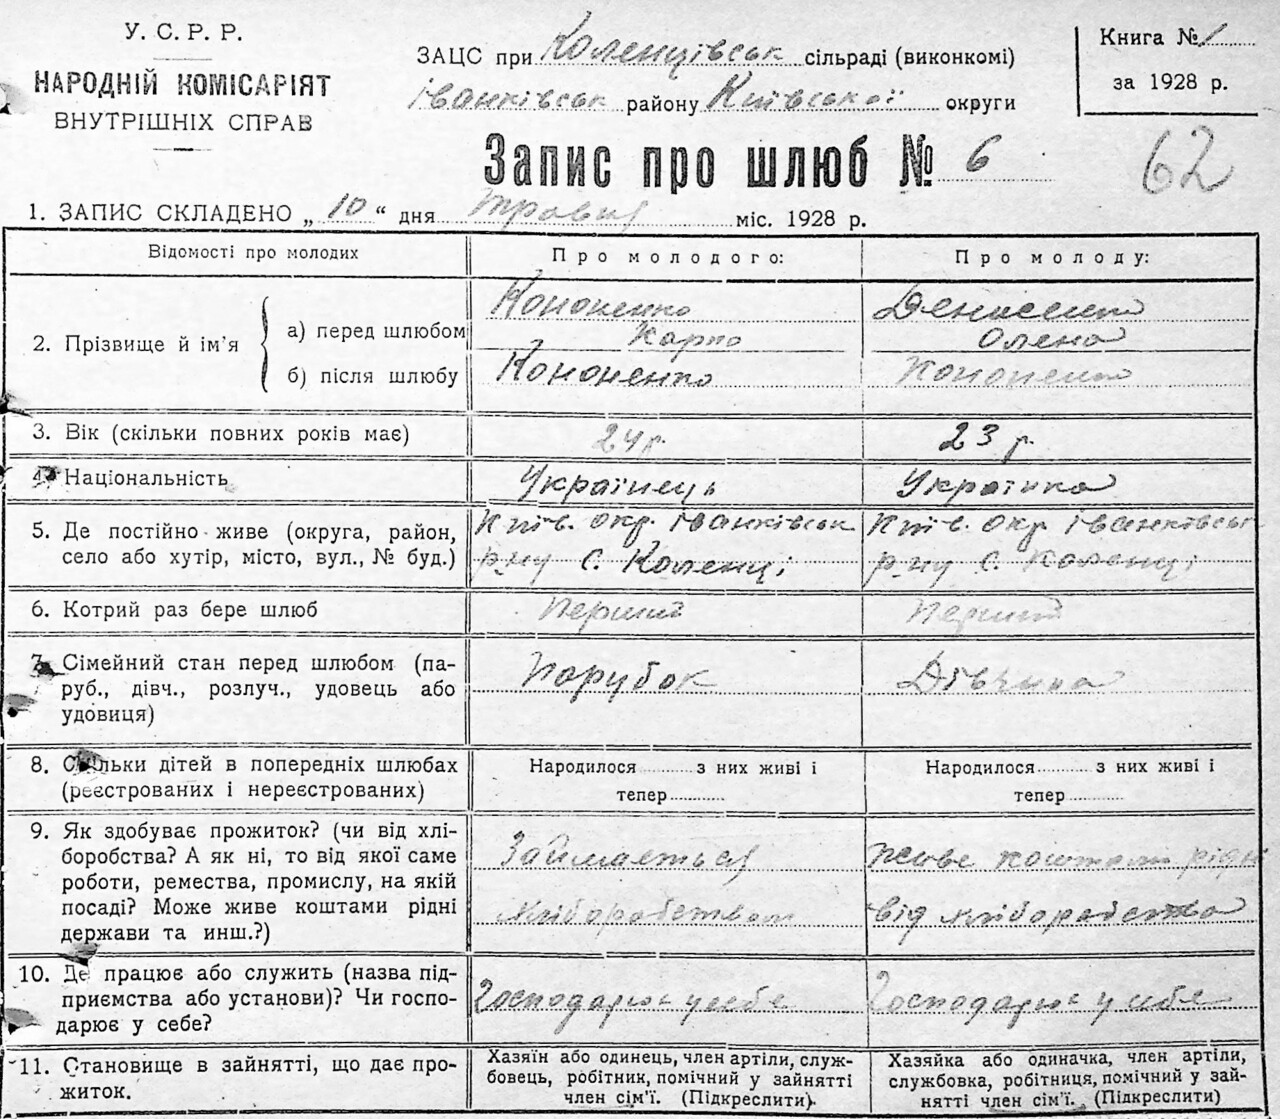 У. С. Р. Р.
НАРОДНІЙ КОМІСАРІЯТ
ВНУТРІШНІХ СПРАВ
ЗАЦС при Коленцівськ сільраді (виконкомі)
Іванківськ району Київської округи
Книга № 1
за 1928 р.
Запис про шлюб № 6
62
1. ЗАПИС СКЛАДЕНО „ 10 “ дня травня міс. 1928 р.
Відомості про молодих
Про молодого:
Про молоду:
2. Прізвище й ім’я
а) перед шлюбом
Кононенко
Карпо
Денисенко
Олена
б) після шлюбу
Кононенко
Кононенко
3. Вік (скільки повних років має)
24 р.
23 р.
4. Національність
Українець
Українка
5. Де постійно живе (округа, район,
село або хутір, місто, вул., № буд.)
Київ. окр. Іванківськ
р-ну с. Коленці
Київ. окр. Іванківськ
р-ну с. Коленці
6. Котрий раз бере шлюб
Перший
Перший
7. Сімейний стан перед шлюбом (па-
руб., дівч., розлуч., удовець або
удовиця)
Парубок
Дівчина
8. Скільки дітей в попередніх шлюбах
(реєстрованих і нереєстрованих)
Народилося ......... з них живі і
тепер .........
Народилося ......... з них живі і
тепер .........
9. Як здобуває прожиток? (чи від хлі-
боробства? А як ні, то від якої саме
роботи, ремества, промислу, на якій
посаді? Може живе коштами рідні
держави та инш.?)
Займається
хліборобством
живе коштами рідні
від хліборобства
10. Де працює або служить (назва під-
приємства або установи)? Чи госпо-
дарює у себе?
Господарює у себе
Господарює у себе
11. Становище в зайнятті, що дає про-
житок.
Хазяїн або одинець, член артіли, служ-
бовець, робітник, помічний у зайнятті
член сім’ї. (Підкреслити).
Хазяйка або одиначка, член артіли,
службовка, робітниця, помічний у зай-
нятті член сім’ї. (Підкреслити)